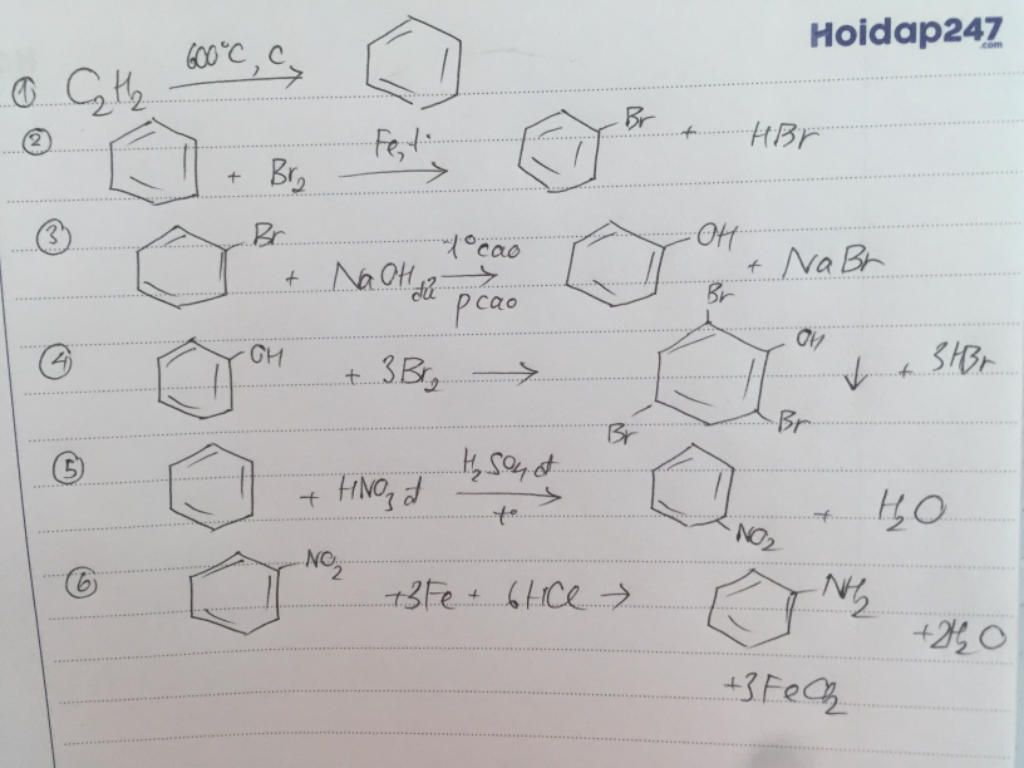 Hoidap247
.com
① C₂H₂ 600°C, C
② + Br₂ Fe, t° Br + HBr
③ Br + NaOH dư t° cao p cao OH + NaBr
④ OH + 3Br₂ Br OH Br Br ↓ + 3HBr
⑤ + HNO₃ đ H₂SO₄ đ t° NO₂ + H₂O
⑥ NO₂ +3Fe + 6HCl → NH₂ +2H₂O
+3FeCl₂